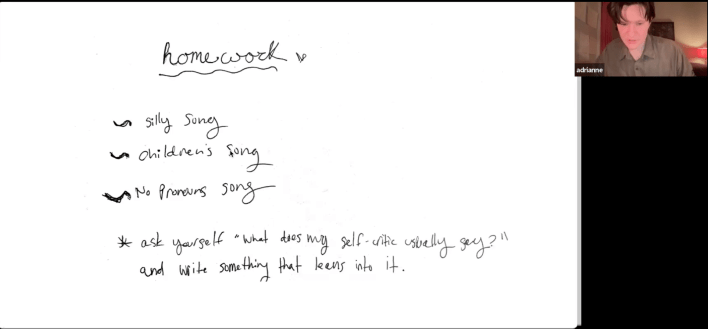 homework
silly song
children's song
No Pronouns song
* ask yourself "what does my self-critic usually say?"
and write something that leans into it.
adrianne